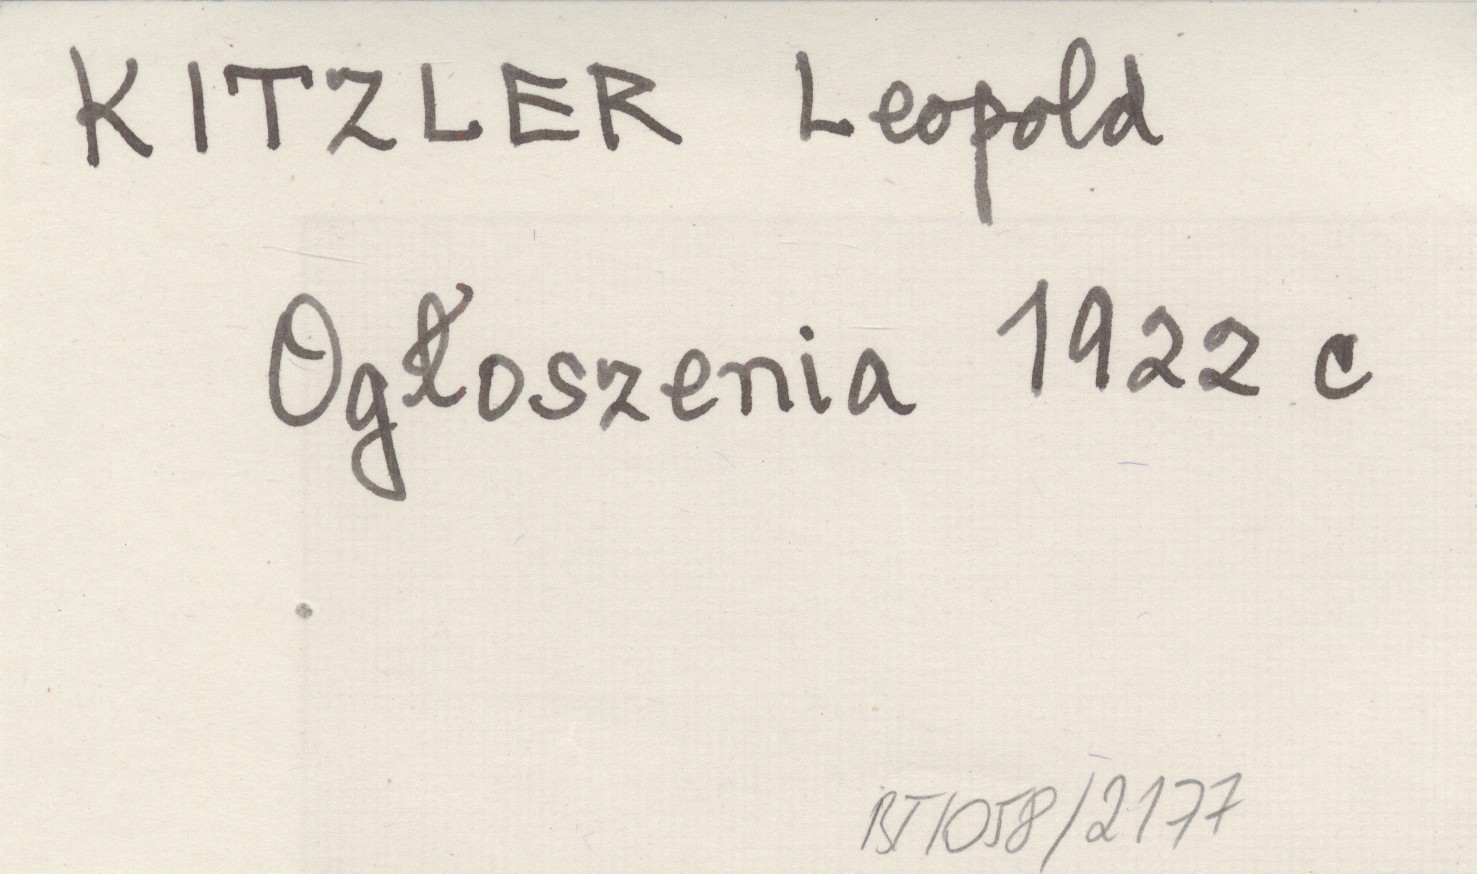 KITZLER Leopold
Ogłoszenia 1922 c
BT1058/2177